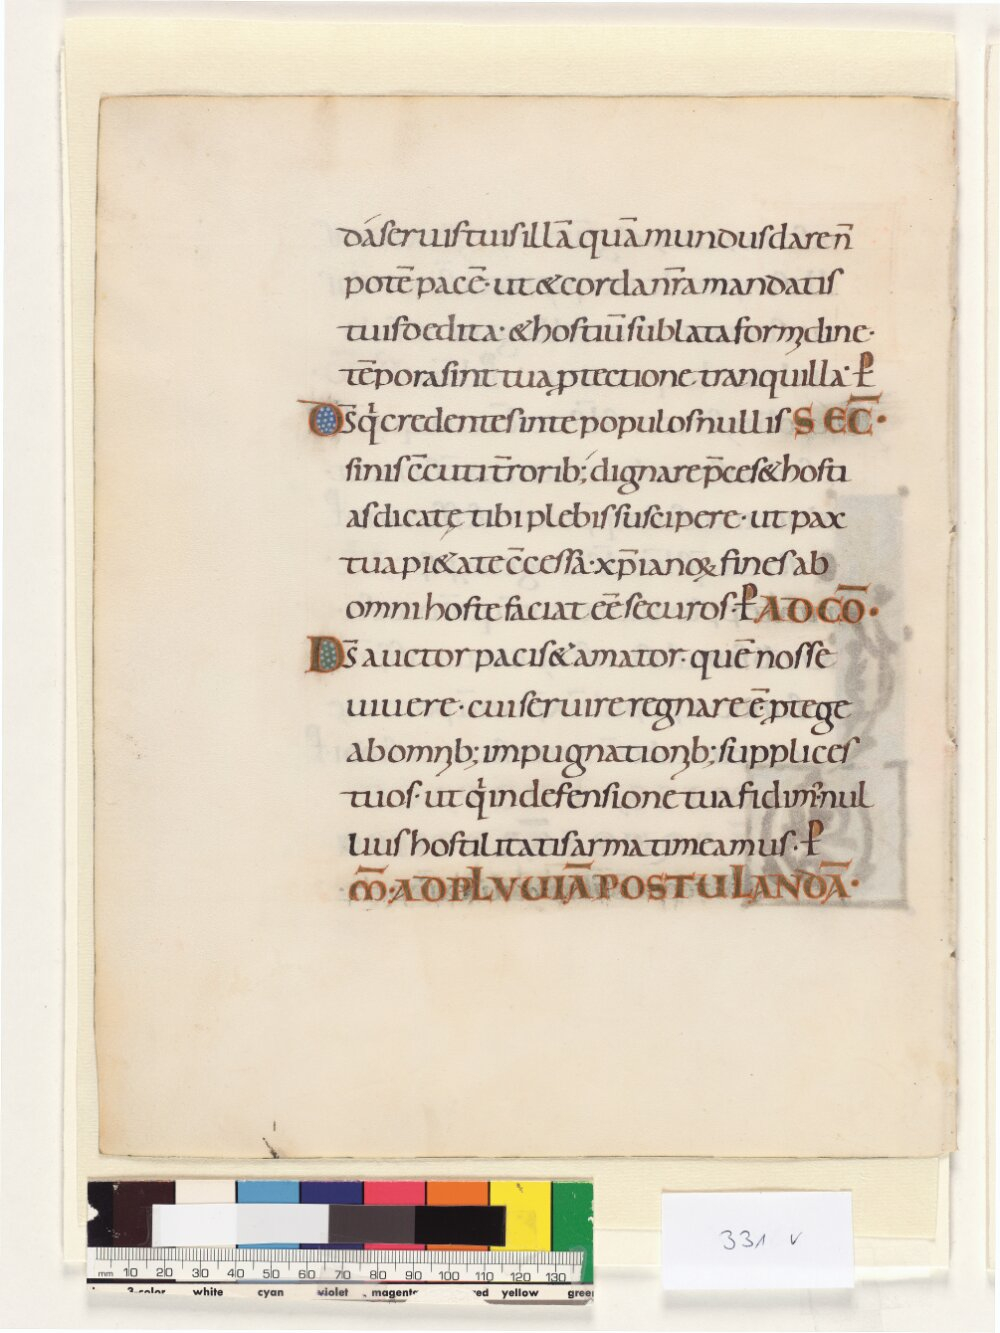 dá servis tuis illā quā mundus dare n̄
potē pacē· ut & corda nr̄a mandatis
tuis dedita· & hostiū sublata formidine·
tēpora sint tua ꝓtectione tranquilla· ꝑ
D̄s q̇ credentes in te populos nullis SEC̄·
sinis c̄cuti t̄rorib; dignare p̄ces & hosti
as dicatę tibi plebis suscipere· ut pax
tua pi&ate c̄cessa· xp̄ianoꝝ fines ab
omni hoste faciat ēē securos· ꝑ AD CŌ·
D̄s auctor pacis & amator· quē nosse
uiuere· cui seruire regnare ē· ꝓtege
ab omnib; impugnationib; supplices
tuos· ut q̇ in defensione tua fidim᾿· nul
lius hostilitatis arma timeamus· ꝑ
M̄· AD PLVVIĀ POSTULANDĀ·
331 v
mm 10 20 30 40 50 60 70 80 90 100 110 120 130
3-color white cyan violet magenta red yellow green